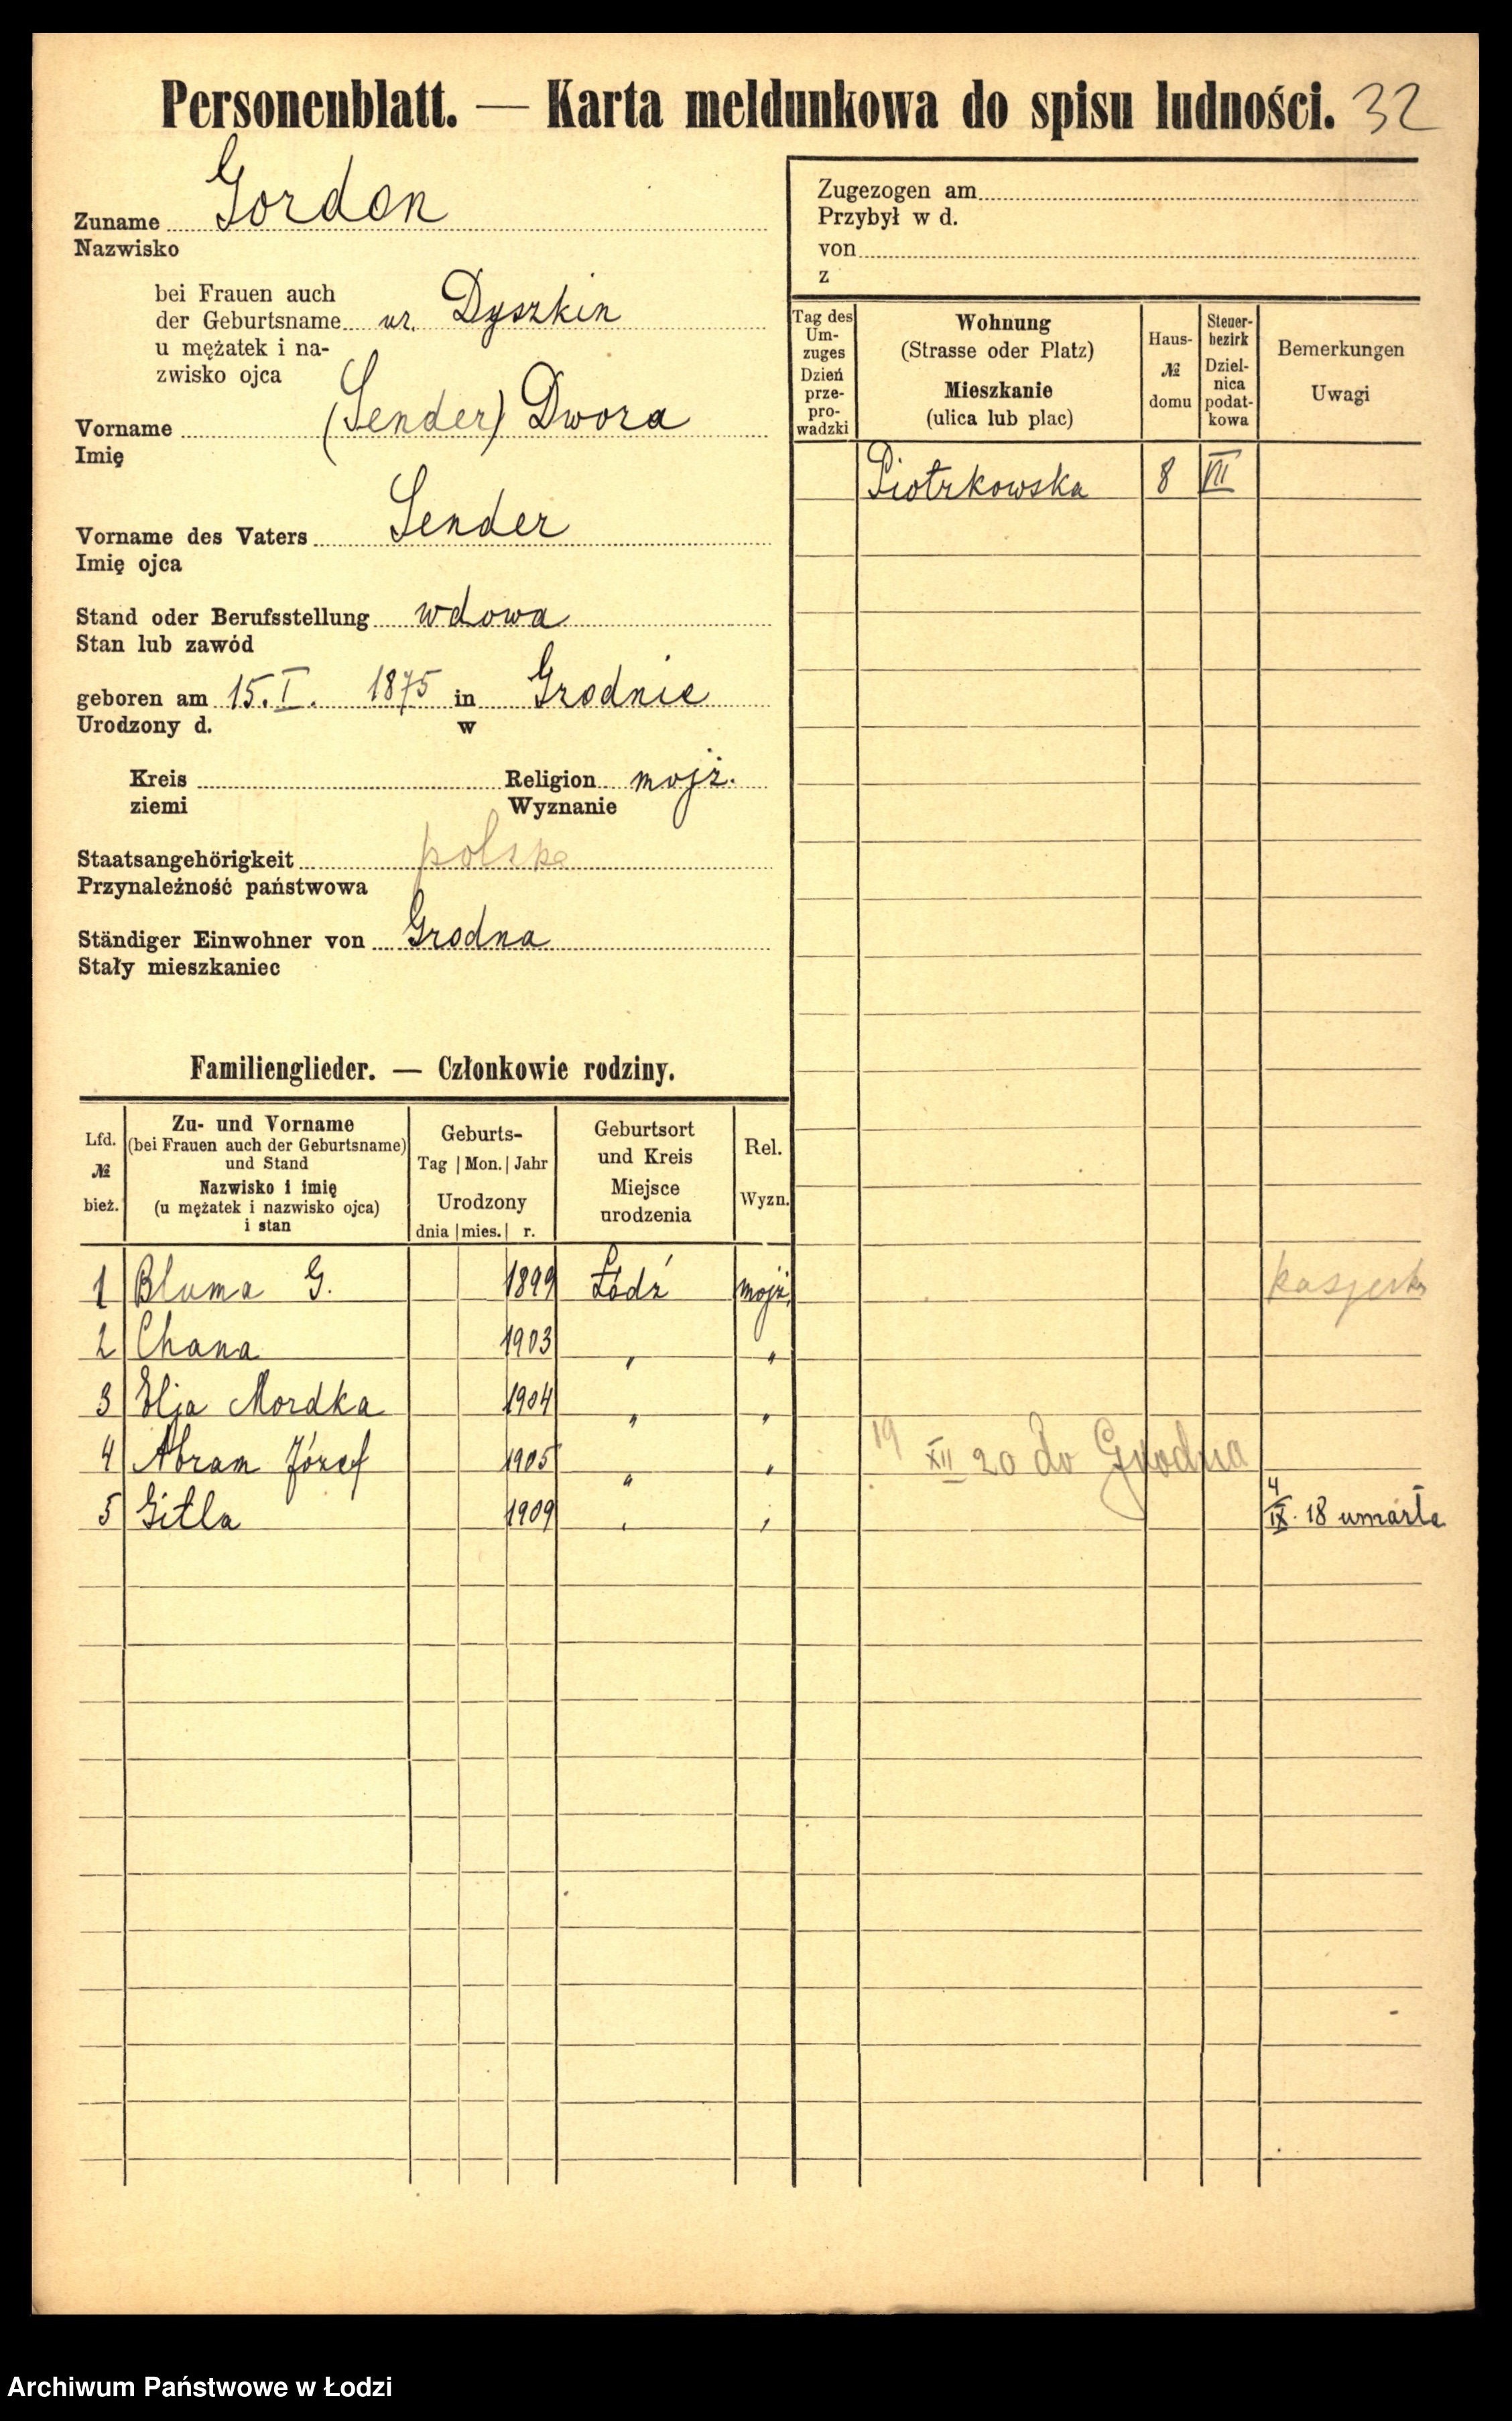 Personenblatt. — Karta meldunkowa do spisu ludności. 32
Zuname Gordon
Nazwisko
bei Frauen auch
der Geburtsname ur. Dyszkin
u mężatek i na-
zwisko ojca
Vorname (Sender) Dwora
Imię
Vorname des Vaters Sender
Imię ojca
Stand oder Berufsstellung wdowa
Stan lub zawód
geboren am 15. I. 1875 in Grodnie
Urodzony d. w
Kreis Religion mojż.
ziemi Wyznanie
Staatsangehörigkeit polska
Przynależność państwowa
Ständiger Einwohner von Grodna
Stały mieszkaniec
Zugezogen am
Przybył w d.
von
z
Tag des Um-zuges Dzień prze-pro-wadzki
Wohnung
(Strasse oder Platz)
Mieszkanie
(ulica lub plac)
Haus-
№
domu
Steuer-bezirk
Dziel-nica podat-kowa
Bemerkungen
Uwagi
Piotrkowska 8 VII
Familienglieder. — Członkowie rodziny.
Lfd.
№
bież.
Zu- und Vorname
(bei Frauen auch der Geburtsname)
und Stand
Nazwisko i imię
(u mężatek i nazwisko ojca)
i stan
Geburts-
Tag | Mon. | Jahr
Urodzony
dnia | mies. | r.
Geburtsort
und Kreis
Miejsce
urodzenia
Rel.
Wyzn.
1 Bluma G. 1899 Łódź mojż.
2 Chana 1903 " "
3 Elja Mordka 1904 " "
4 Abram Józef 1905 " " 19 XII 20 do Grodna
5 Gitla 1909 " " 4 IX. 18 umarła
Archiwum Państwowe w Łodzi